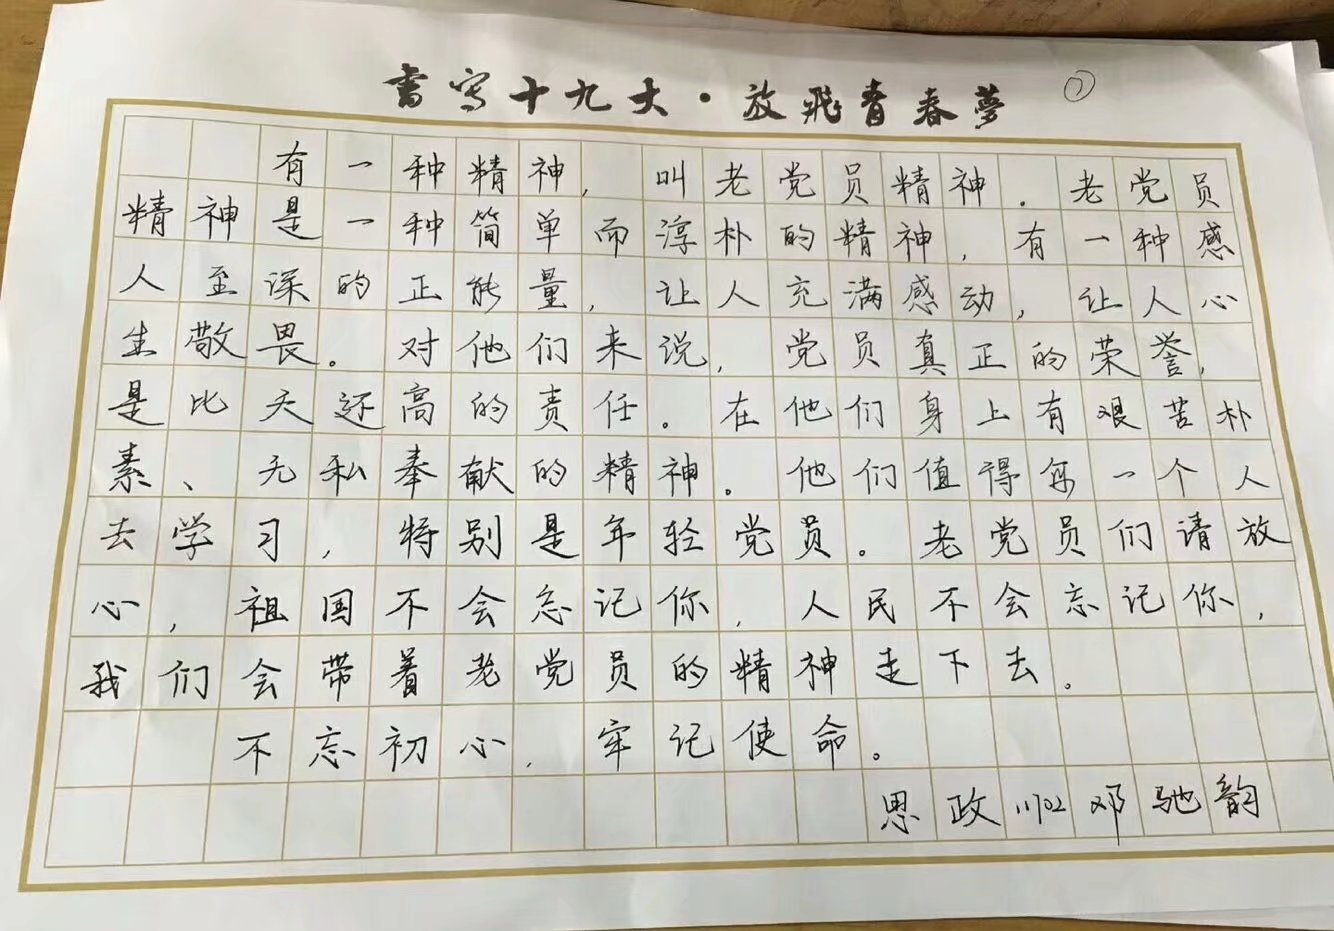 书写十九大·放飞青春梦
①
有一种精神，叫老党员精神。老党员
精神是一种简单而淳朴的精神，有一种感
人至深的正能量，让人充满感动，让人心
生敬畏。对他们来说，党员真正的荣誉，
是比天还高的责任。在他们身上有艰苦朴
素、无私奉献的精神。他们值得每一个人
去学习，特别是年轻党员。老党员们请放
心，祖国不会忘记你，人民不会忘记你，
我们会带着老党员的精神走下去。
不忘初心，牢记使命。
思政1702邓驰韵